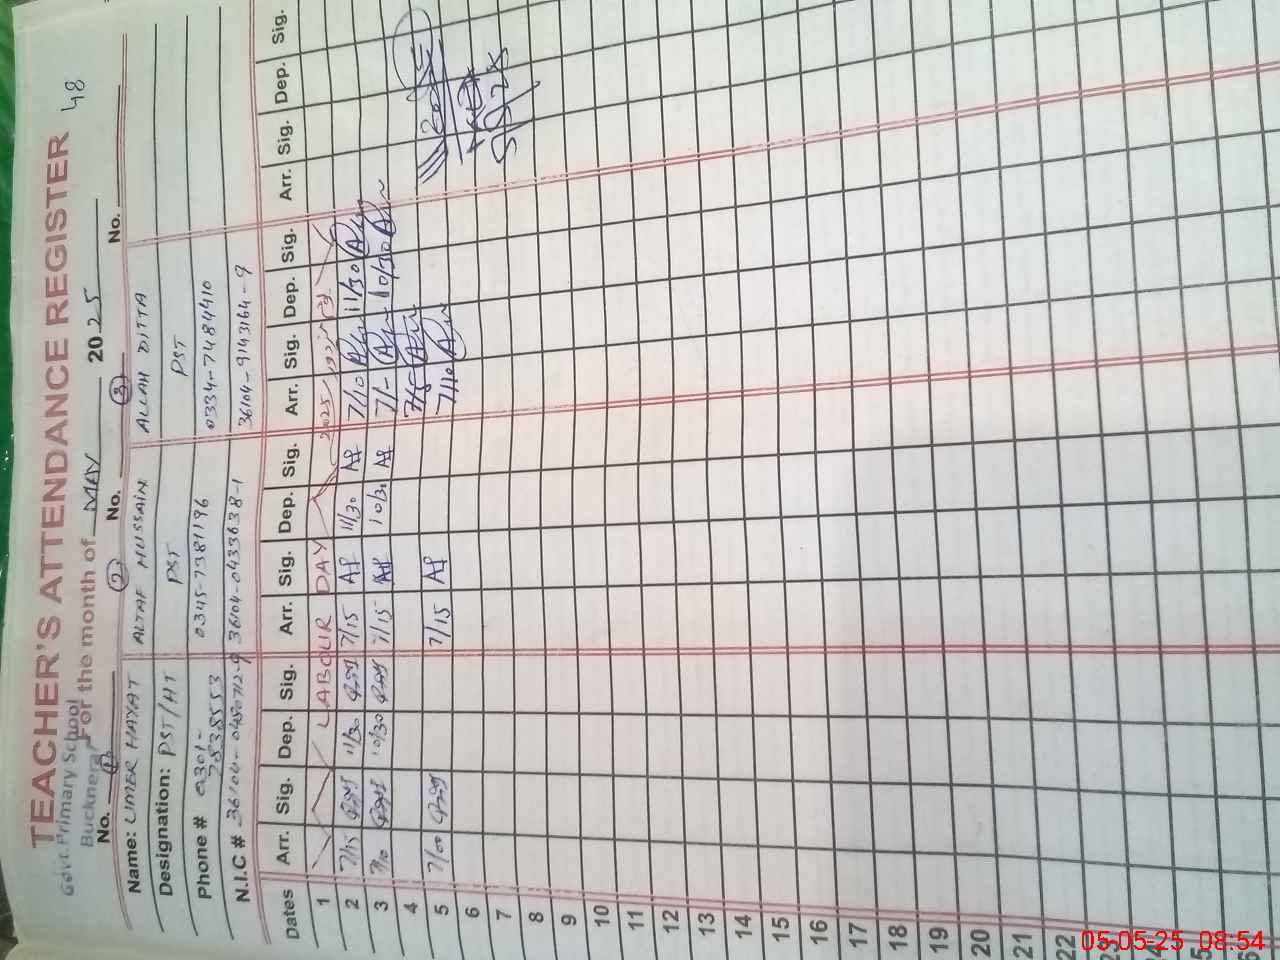 TEACHER'S ATTENDANCE REGISTER 48
Govt. Primary School
Bucknera
For the month of MAY 2025
No. 1 2 No. 3 No.
Name: UMER HAYAT ALTAF HUSSAIN ALLAH DITTA
Designation: PST/HT PST PST
Phone # 0301-7838553 0345-7381196 0334-7484410
N.I.C # 36104-0480712-9 36104-0433638-1 36104-9143164-9
Dates Arr. Sig. Dep. Sig. Arr. Sig. Dep. Sig. Arr. Sig. Dep. Sig. Arr. Sig. Dep. Sig.
1 LABOUR DAY 2025
2 7/15 11/30 7/15 Af 11/30 Af 7/10 11/30
3 7/10 10/30 7/15 Af 10/30 Af 7/- 10/30
4
5 7/00 7/15 Af 7/10
6
7
8
9
10
11
12
13
14
15
16
17
18
19
20
21
22
23
24
05-05-25 08:54